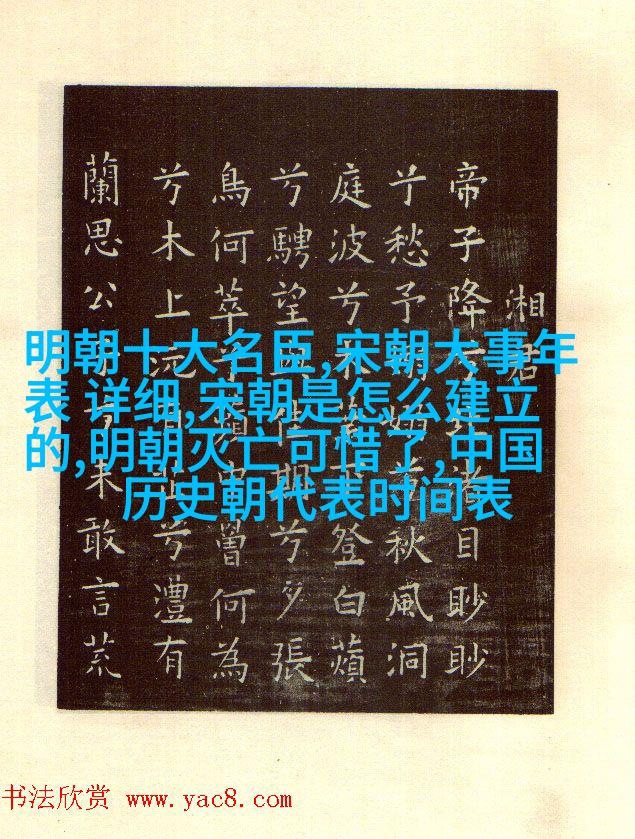 明朝十大名臣,宋朝大事年
表 详细,宋朝是怎么建立
的,明朝灭亡可惜了,中国
历史朝代表时间表
湘君
帝子降兮北渚目眇眇
兮愁予嫋兮秋風洞
庭波兮木葉下登白蘋
兮騁望與佳期兮夕張
鳥何萃兮蘋中罾何為
兮木上沅有芷兮澧有
蘭思公子兮未敢言荒
书法欣赏 www.yac8.com